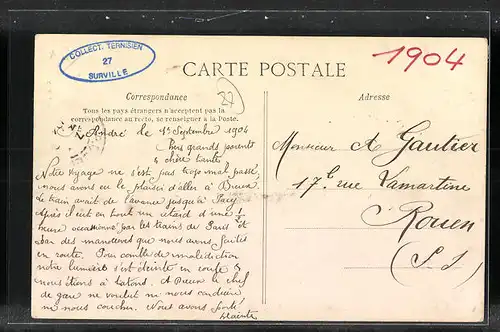 COLLECT. TERNISIEN
27
SURVILLE
1904
CARTE POSTALE
Correspondance
27
Adresse
Tous les pays étrangers n'acceptent pas la
correspondance au recto, se renseigner à la Poste.
St André le 1er Septembre 1904
Chers grands parents
& chère tante
Notre voyage ne s'est pas trop mal passé
nous avons eu le plaisir d'aller à Breux
Le train avait de l'avance jusqu'à Pacy
Après il eut en tout un retard d'une 1/2
heure occasionné par les trains de Paris et
par des manœuvres que nous avons faites
en route. Pour comble de malédiction
notre lumière s'est éteinte en route &
nous étions à tatons. A Breux le chef
de gare ne voulut ni nous conduire
ni nous coucher. Nous avons
Monsieur A Gautier
17 rue Lamartine
Rouen
(S I)